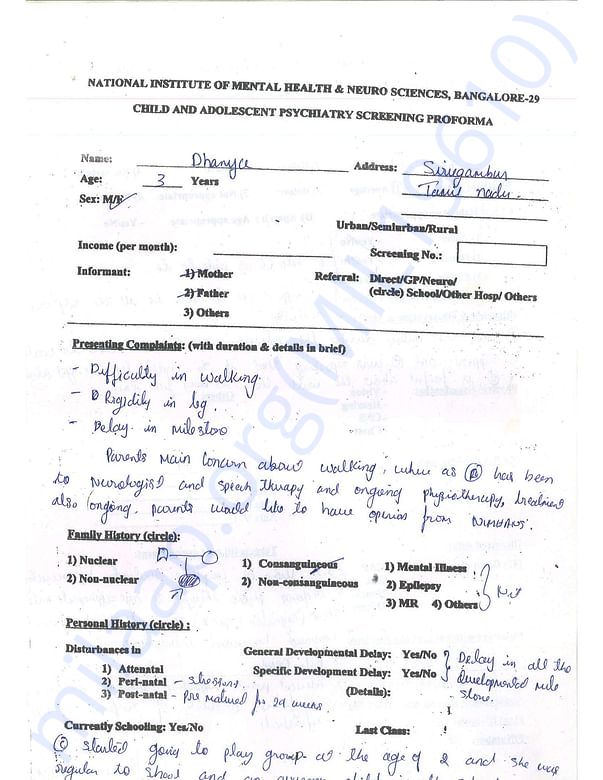 NATIONAL INSTITUTE OF MENTAL HEALTH & NEURO SCIENCES, BANGALORE-29
CHILD AND ADOLESCENT PSYCHIATRY SCREENING PROFORMA
Name: Dhanya Address:
Tamil nadu.
Age: 3 Years
Sex: M/F
Urban/Semiurban/Rural
Income (per month): Screening No.:
Informant: 1) Mother Referral: Direct/GP/Neuro/
2) Father (circle) School/Other Hosp/ Others
3) Others
Presenting Complaints: (with duration & details in brief)
- Difficulty in walking.
- Rigidity in leg.
- Delay in milestone
Parents main concern about walking, where as has been
to Neurologist and speech therapy and ongoing physiotherapy, treatment
also ongoing. parents would like to have opinion from 'NIMHANS'.
Family History (circle):
1) Nuclear 1) Consanguineous 1) Mental Illness
2) Non-nuclear 2) Non-consanguineous 2) Epilepsy
3) MR 4) Others
Personal History (circle) :
Disturbances in General Developmental Delay: Yes/No Delay in all the
1) Attenatal Specific Development Delay: Yes/No developmental mile
2) Peri-natal - (Details): stone.
3) Post-natal - pre matured for 29 weeks
Currently Schooling: Yes/No Last Class:
started going to play group at the age of 2 and she was
regular to school and an
milaap.org(MIL19610)